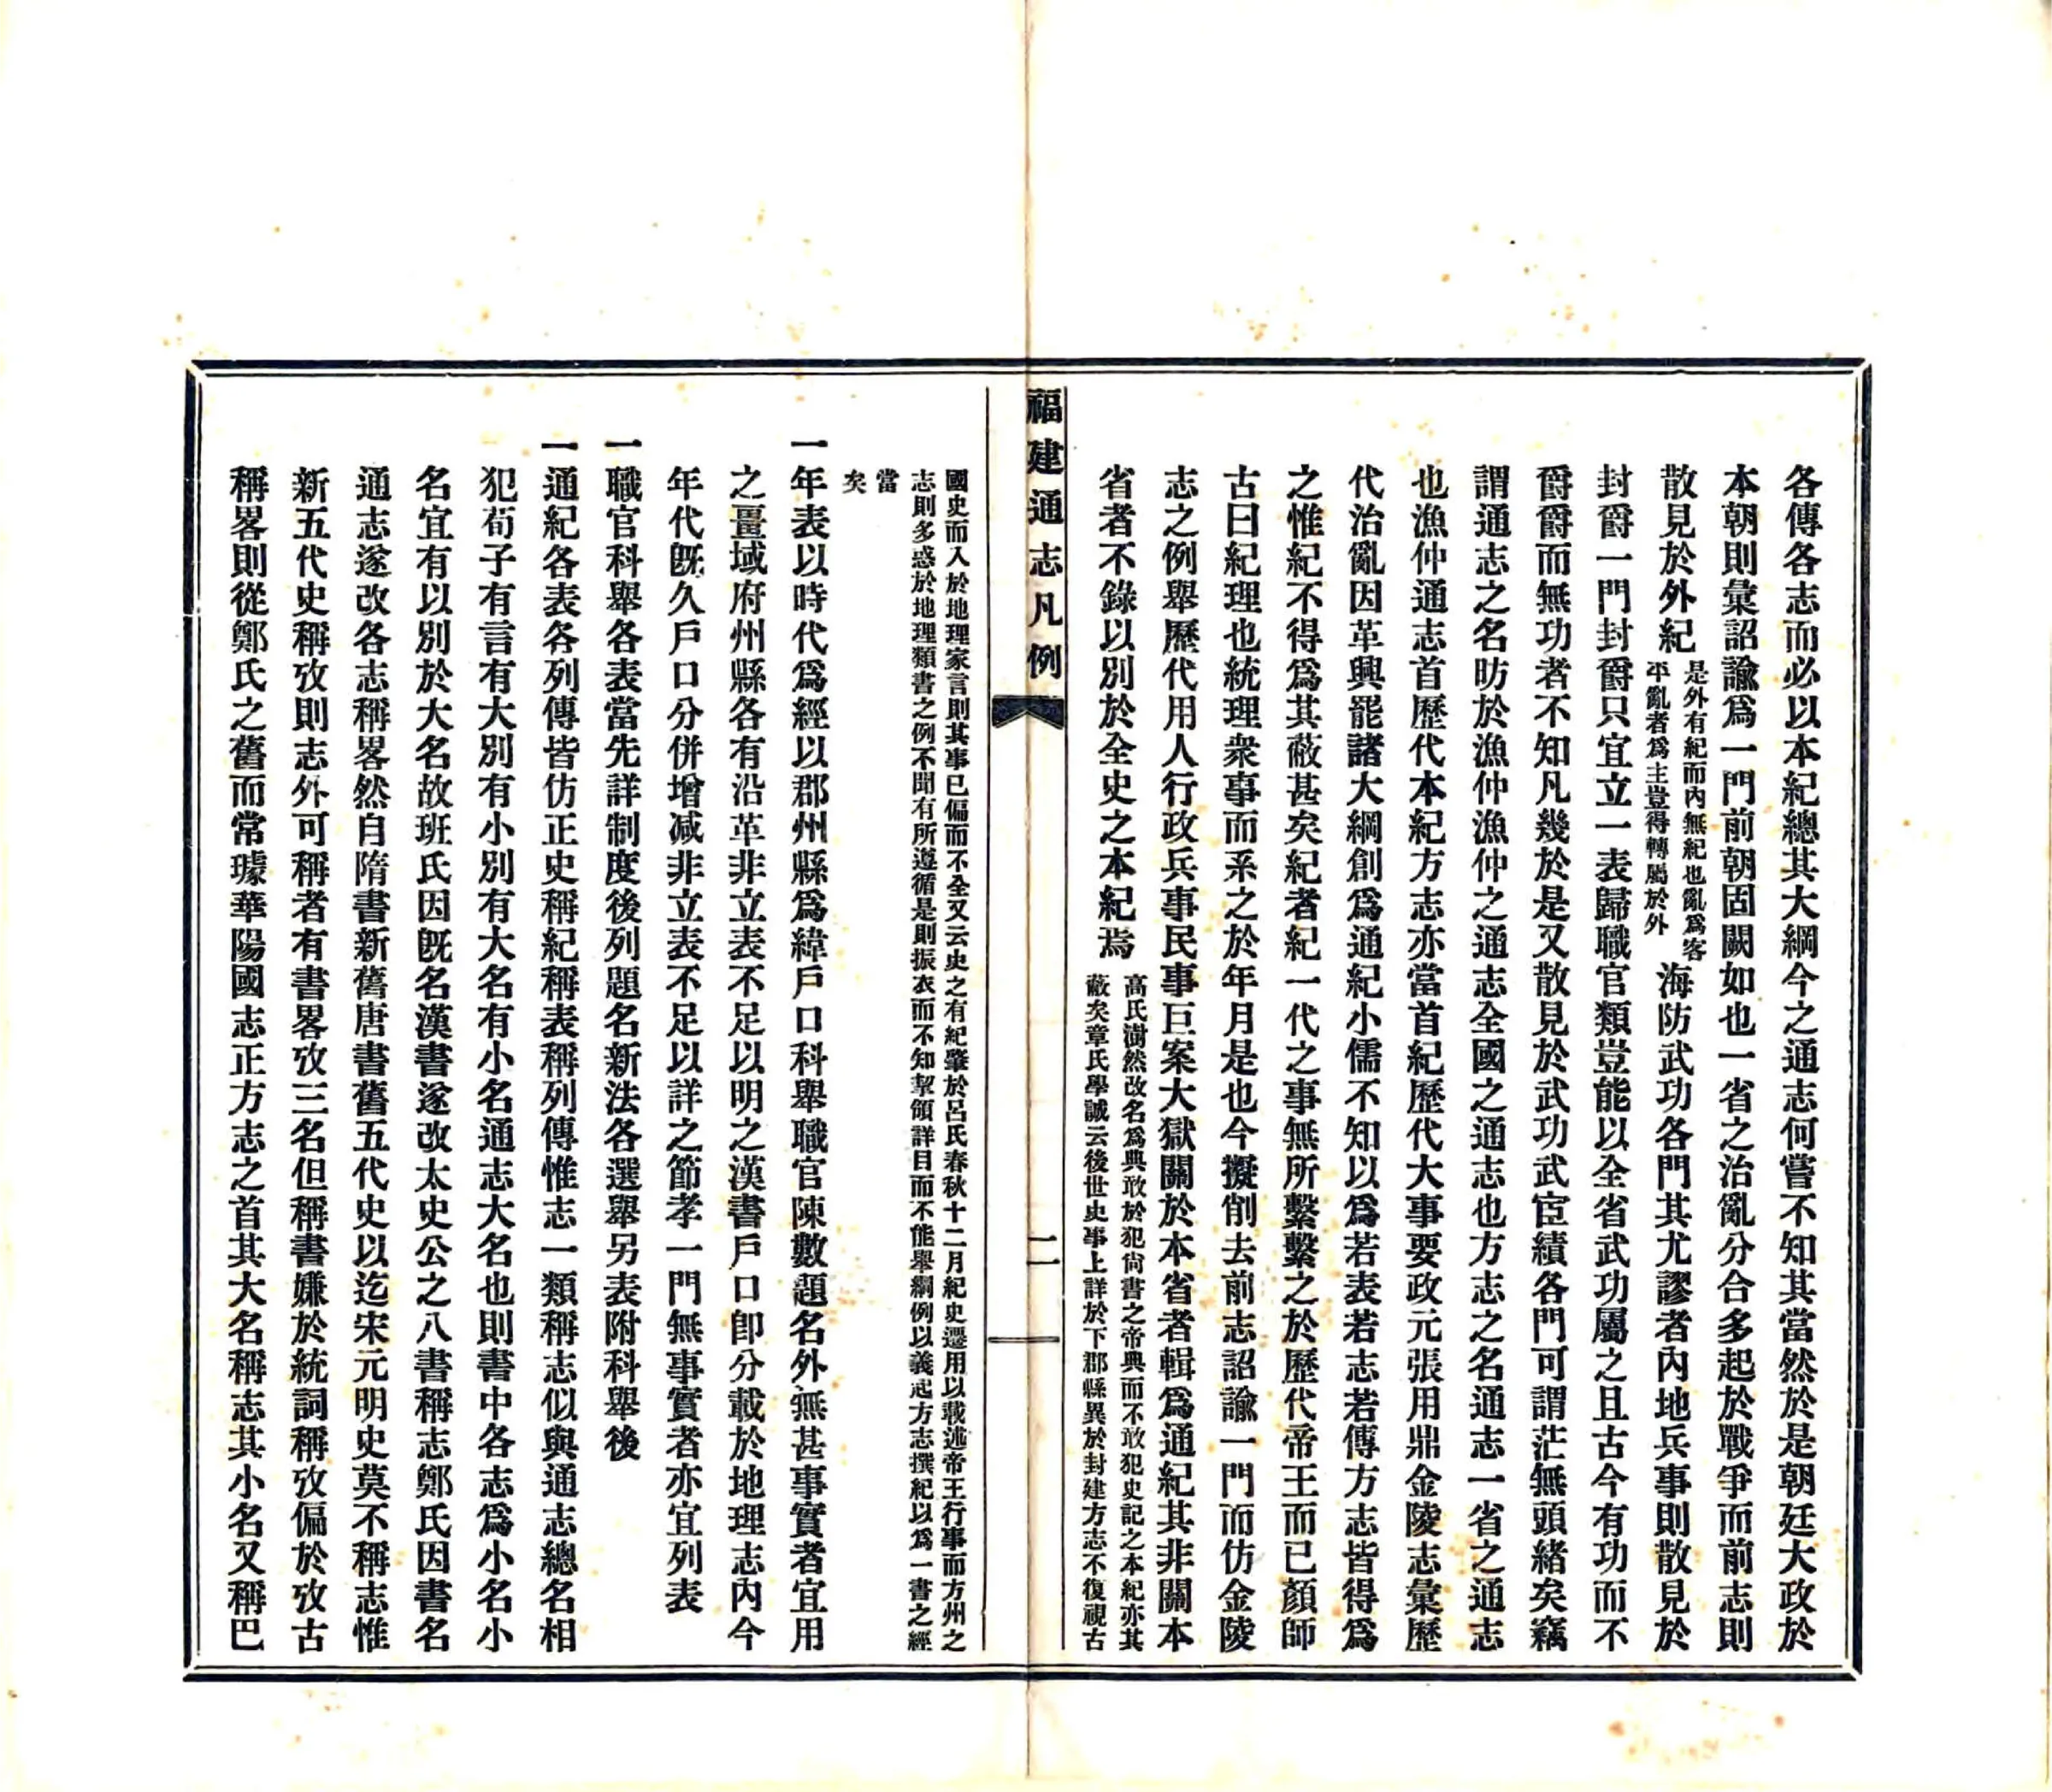 各傳各志而必以本紀總其大綱今之通志何嘗不知其當然於是朝廷大政於
本朝則彙詔諭爲一門前朝固闕如也一省之治亂分合多起於戰爭而前志則
散見於外紀是外有紀而內無紀也亂爲客平亂者爲主豈得轉屬於外海防武功各門其尤謬者內地兵事則散見於
封爵一門封爵只宜立一表歸職官類豈能以全省武功屬之且古今有功而不
爵爵而無功者不知凡幾於是又散見於武功武宦績各門可謂茫無頭緒矣竊
謂通志之名昉於漁仲漁仲之通志全國之通志也方志之名通志一省之通志
也漁仲通志首歷代本紀方志亦當首紀歷代大事要政元張用鼎金陵志彙歷
代治亂因革興罷諸大綱創爲通紀小儒不知以爲若表若志若傳方志皆得爲
之惟紀不得爲其蔽甚矣紀者紀一代之事無所繫繫之於歷代帝王而已顏師
古曰紀理也統理衆事而系之於年月是也今擬削去前志詔諭一門而仿金陵
志之例舉歷代用人行政兵事民事巨案大獄關於本省者輯爲通紀其非關本
省者不錄以別於全史之本紀焉高氏澍然改名爲典敢於犯尙書之帝典而不敢犯史記之本紀亦其蔽矣章氏學誠云後世史事上詳於下郡縣異於封建方志不復視古
福建通志凡例
二
國史而入於地理家言則其事已偏而不全又云史之有紀肇於呂氏春秋十二月紀史遷用以載述帝王行事而方州之
志則多惑於地理類書之例不聞有所遵循是則振衣而不知挈領詳目而不能舉綱例以義起方志撰紀以爲一書之經
當
矣
一年表以時代爲經以郡州縣爲緯戶口科舉職官陳數題名外無甚事實者宜用
之疆域府州縣各有沿革非立表不足以明之漢書戶口卽分載於地理志內今
年代旣久戶口分併增減非立表不足以詳之節孝一門無事實者亦宜列表
一職官科舉各表當先詳制度後列題名新法各選舉另表附科舉後
一通紀各表各列傳皆仿正史稱紀稱表稱列傳惟志一類稱志似與通志總名相
犯荀子有言有大別有小別有大名有小名通志大名也則書中各志爲小名小
名宜有以別於大名故班氏因旣名漢書遂改太史公之八書稱志鄭氏因書名
通志遂改各志稱畧然自隋書新舊唐書舊五代史以迄宋元明史莫不稱志惟
新五代史稱攷則志外可稱者有書畧攷三名但稱書嫌於統詞稱攷偏於攷古
稱畧則從鄭氏之舊而常璩華陽國志正方志之首其大名稱志其小名又稱巴